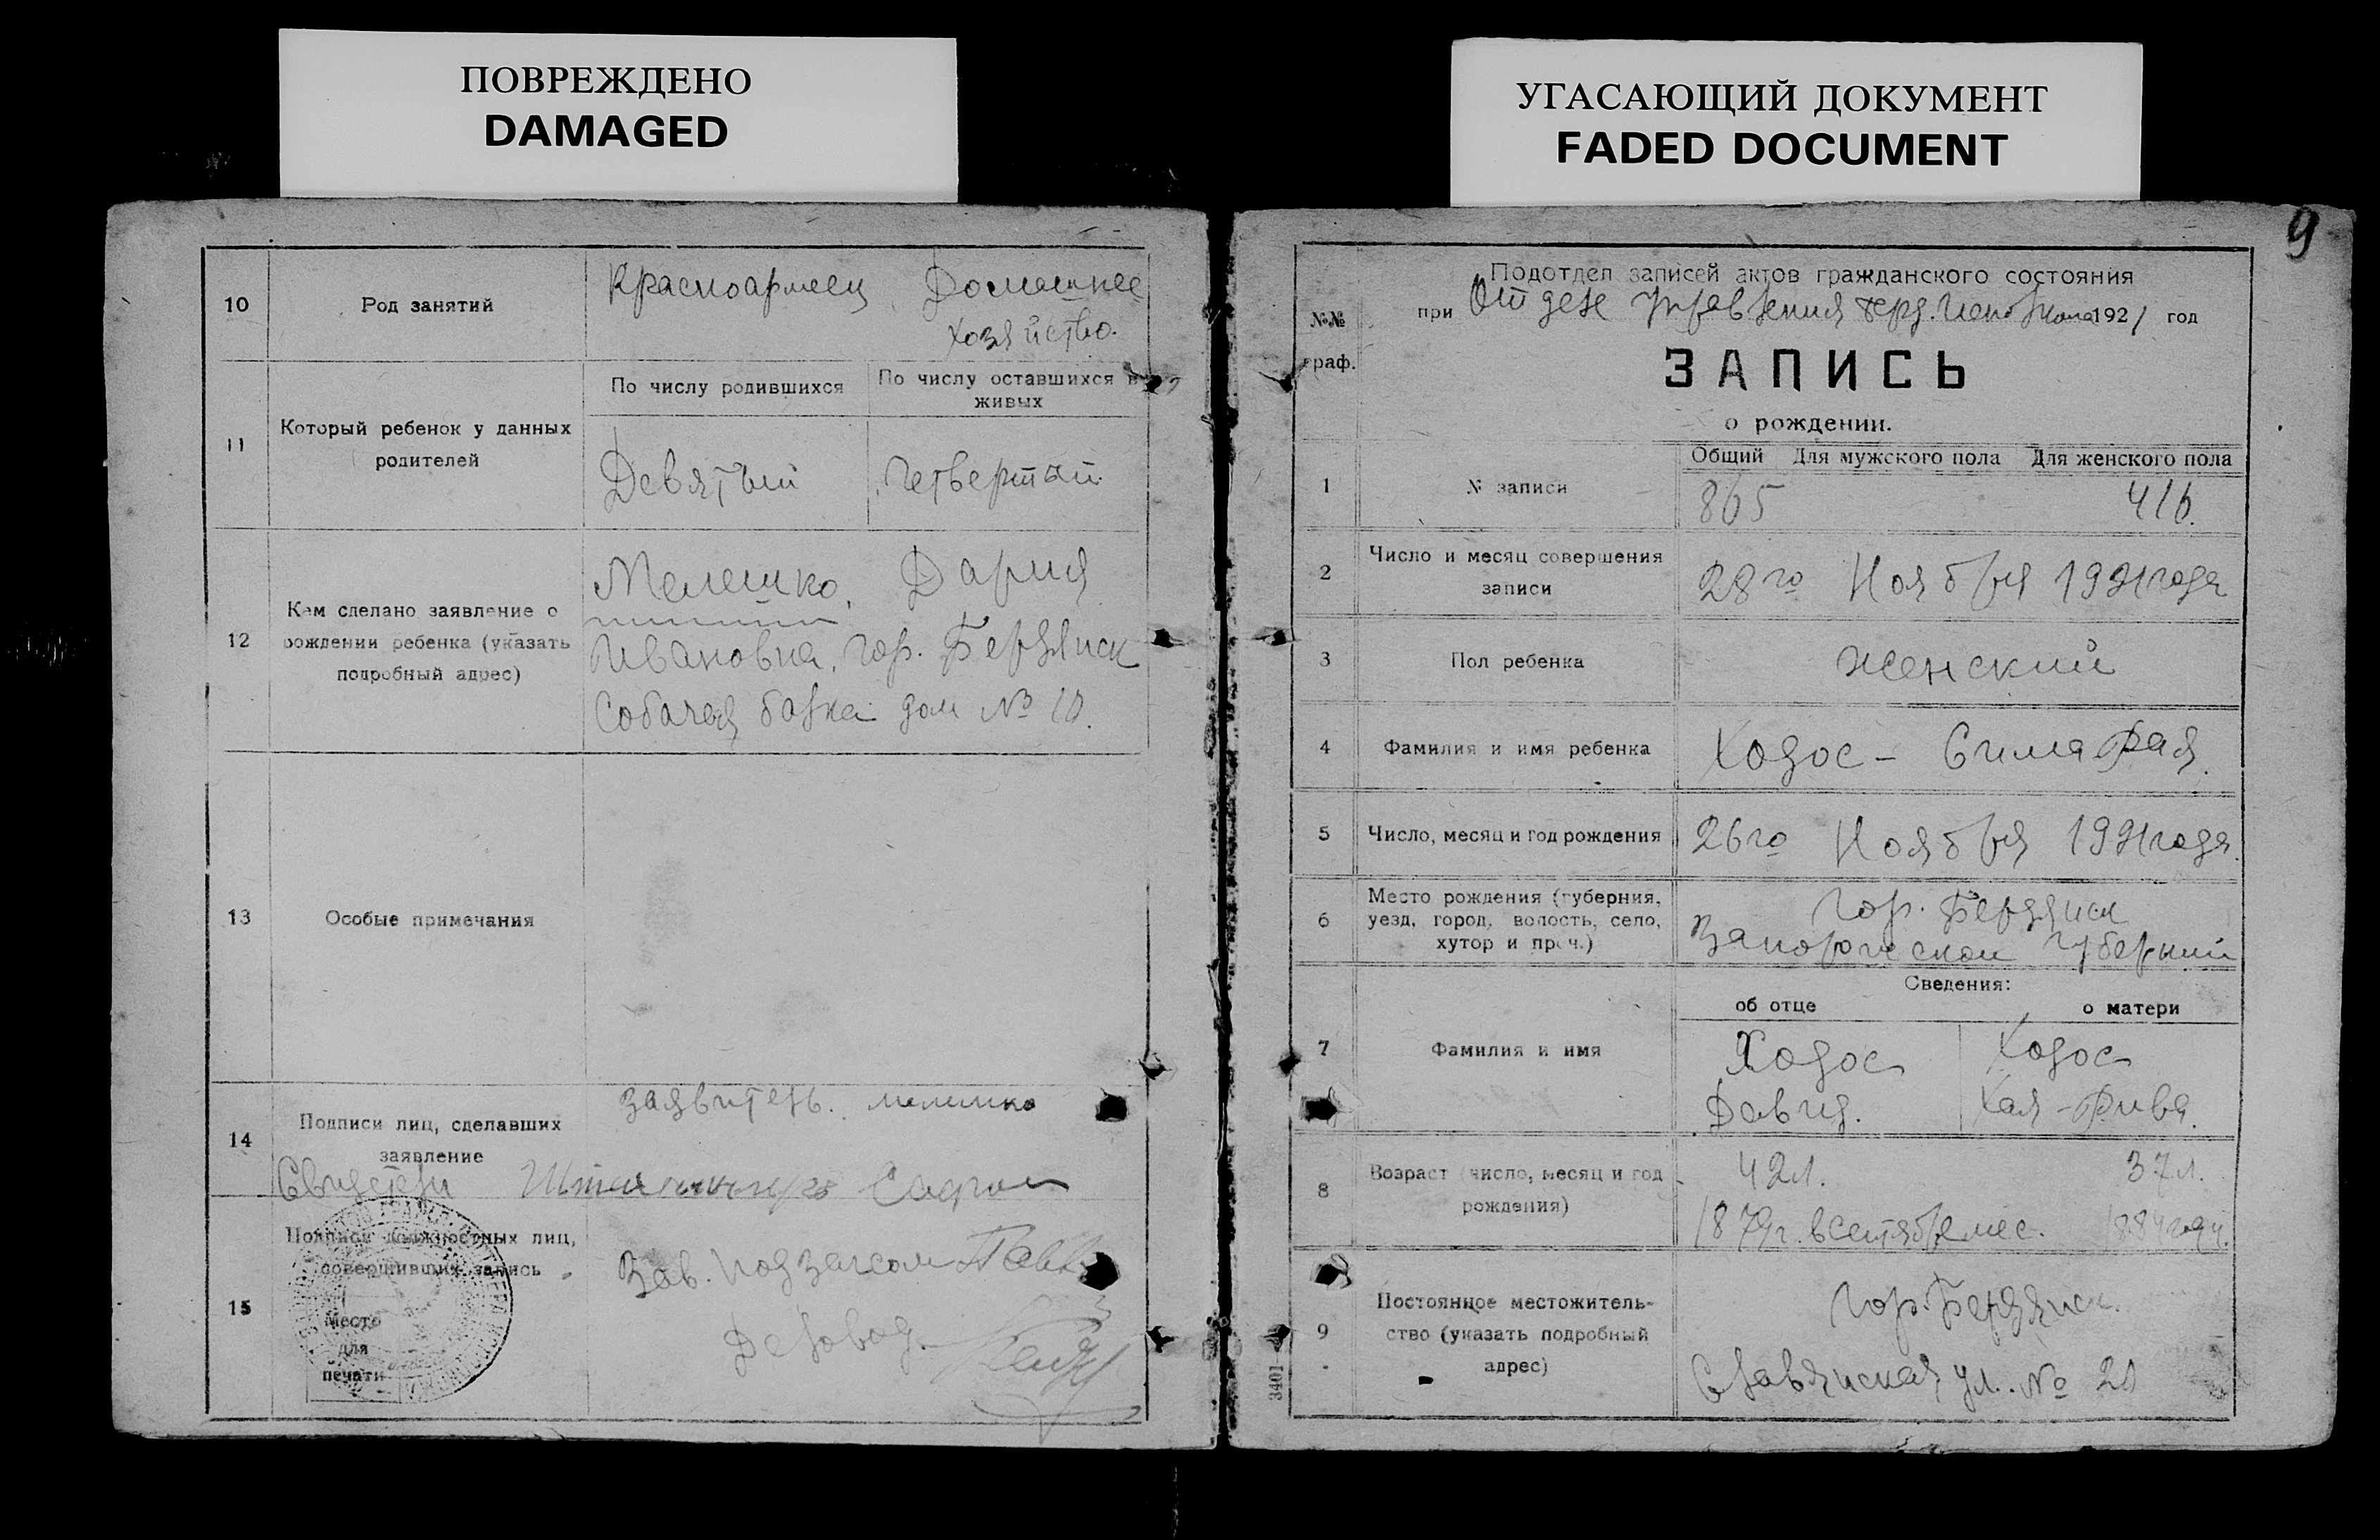 ПОВРЕЖДЕНО
DAMAGED
УГАСАЮЩИЙ ДОКУМЕНТ
FADED DOCUMENT
10
Род занятий
Красноармеец
Домашнее
хозяйство.
11
Который ребенок у данных
родителей
По числу родившихся
По числу оставшихся в
живых
Девятый
Четвертый
12
Кем сделано заявление о
рождении ребенка (указать
подробный адрес)
Мелешко, Дария
Ивановна, гор. Бердянск
Собачая балка дом № 10.
13
Особые примечания
14
Подписи лиц, сделавших
заявление
Заявитель. мелешко
Свидетели
15
Подписи должностных лиц,
совершивших запись
Место
для
печати
Зав. подзагсом
Деловод.
9
№№
граф.
Подотдел записей актов гражданского состояния
при Отделе Управления Берд. Исполкома 1921 год
ЗАПИСЬ
о рождении.
1
№ записи
Общий Для мужского пола Для женского пола
865 416.
2
Число и месяц совершения
записи
28го Ноября 1921 года
3
Пол ребенка
женский
4
Фамилия и имя ребенка
Ходос - Сима Рая.
5
Число, месяц и год рождения
26го Ноября 1921 года.
6
Место рождения (губерния,
уезд, город, волость, село,
хутор и проч.)
Гор. Бердянск
Запорожской Губернии
Сведения:
об отце о матери
7
Фамилия и имя
Ходос
Давид.
Ходос
Хая-Рива.
8
Возраст (число, месяц и год
рождения)
42л. 37л.
1879г. в сентябре мес. 1884 году.
9
Постоянное местожитель-
ство (указать подробный
адрес)
Гор. Бердянск.
Славянская ул. № 20
3401